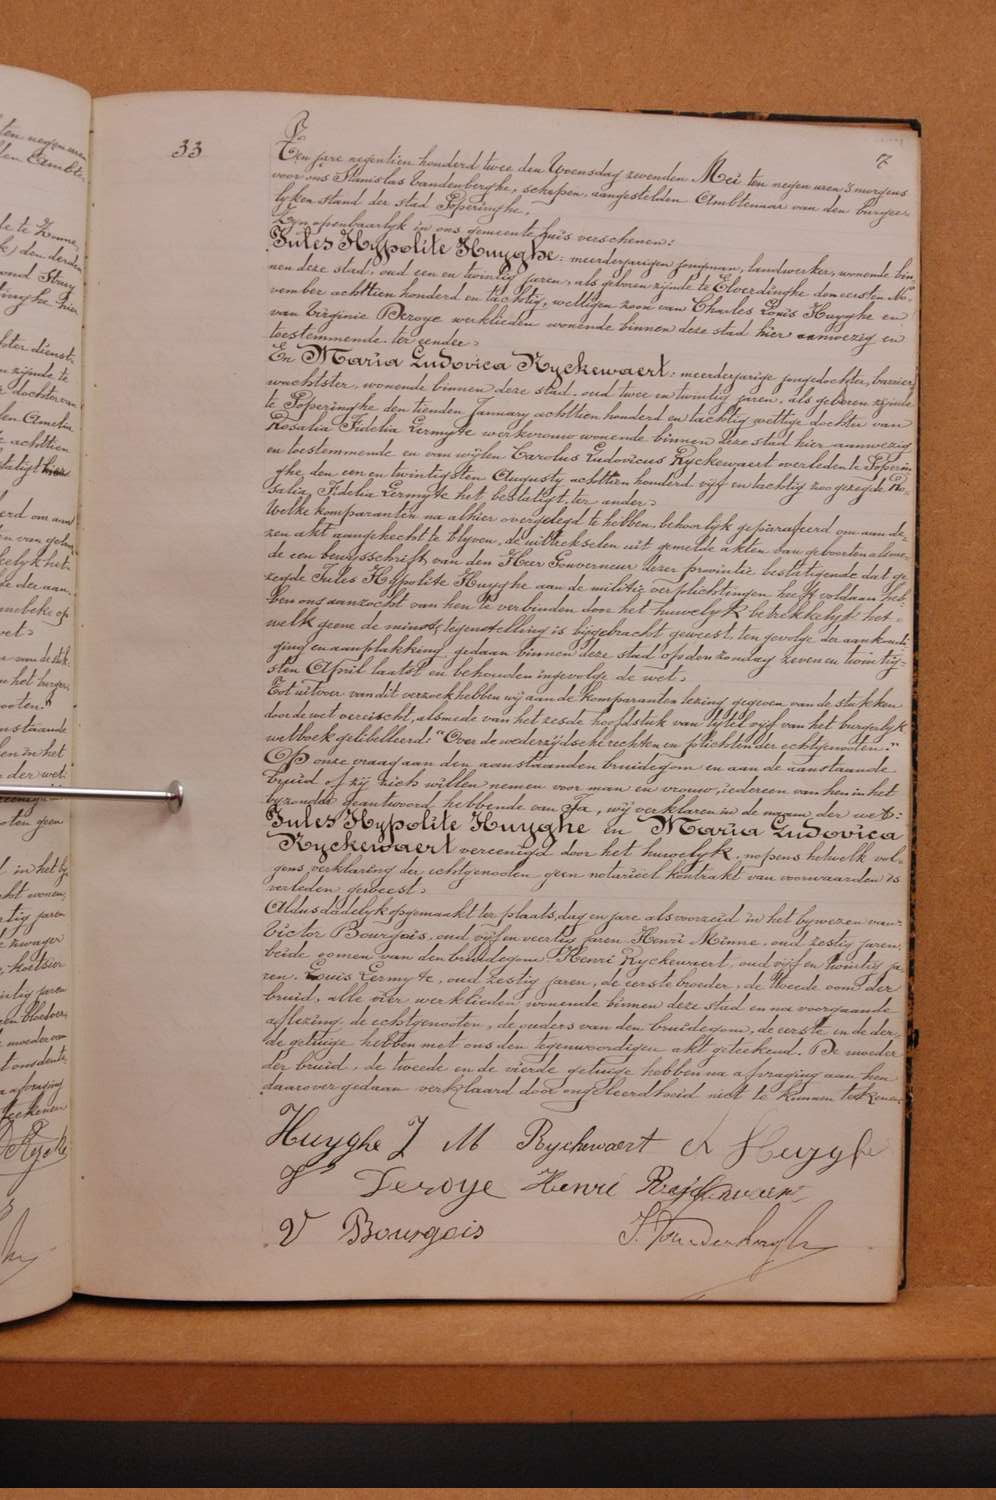 33
7
Ten jare negentien honderd twee den Woensdag zevenden Mei ten negen uren 's morgens
voor ons Stanislas Vandenberghe, schepen, aangestelden Ambtenaar van den burger-
lyken stand der stad Poperinghe,
Zyn openbaarlyk in ons gemeente huis verschenen:
Jules Hypolite Huyghe: meerderjarigen jongman, landwerker, wonende bin-
nen deze stad, oud een en twintig jaren, als geboren zijnde te Elverdinghe den eersten No-
vember achttien honderd en tachtig, wettigen zoon van Charles Louis Huyghe en
van Virginie Deroye werklieden wonende binnen deze stad hier aanwezig en
toestemmende ter eendre
En Maria Ludovica Ryckewaert: meerderjarige jongedochter,
wonende binnen deze stad, oud twee en twintig jaren, als geboren zijnde
te Poperinghe den tienden January achttien honderd en tachtig wettige dochter van
Rosalia Fidelia Lermyte werkvrouw wonende binnen deze stad hier aanwezig
en toestemmende en van wijlen Carolus Ludovicus Ryckewaert overleden te Poperin-
ghe den een en twintigsten Augusty achttien honderd vijf en tachtig zoo gezegde Ro-
salia Fidelia Lermyte het bestatigt, ter andere
Welke komparanten na alhier overgelegd te hebben, behoorlyk geparafeerd om aan de-
zen akt aangehecht te blyven, de uittrekselen uit gemelde akten van geboorten alsme-
de een bewysschrift van den Heer Gouverneur dezer provintie bestatigende dat ge-
zegde Jules Hypolite Huyghe aan de militie verplichtingen heeft voldaan, heb-
ben ons aanzocht van hen te verbinden door het huwelyk betrekkelyk het-
welk geene de minste tegenstelling is bijgebracht geweest, ten gevolge der aankondi-
ging en aanplakking gedaan binnen deze stad op den zondag zeven en twintig-
sten April laatst en behouden ingevolge de wet.
Tot uitvoer van dit verzoek hebben wij aan de komparanten lezing gegeven van de stukken
door de wet vereischt, alsmede van het zesde hoofdstuk van tytel vijf van het burgerlyk
wetboek getibelleerd: "Over de wederzijdsche rechten en plichten der echtgenooten."
Op onze vraag aan den aanstaanden bruidegom en aan de aanstaande
bruid of zij zich willen nemen voor man en vrouw, iedereen van hen in het
byzonder geantwoord hebbende van Ja, wij verklaren in de naam der wet:
Jules Hypolite Huyghe en Maria Ludovica
Ryckewaert vereenigd door het huwelyk, nopens hetwelk vol-
gens verklaring der echtgenooten geen notarieel kontrakt van voorwaarden is
verleden geweest.
Aldus dadelyk opgemaakt ter plaats, dag en jare als voorzeid in het bywezen van:
Victor Bourgois, oud vijf en veertig jaren Henri Minne, oud zestig jaren,
beide oomen van den bruidegom Henri Ryckewaert, oud vijf en twintig ja-
ren, Louis Lermyte, oud zestig jaren, de eerste broeder, de tweede oom der
bruid, alle vier werklieden wonende binnen deze stad en na voorgaande
aflezing de echtgenooten, de ouders van den bruidegom, de eerste en de der-
de getuige hebben met ons den tegenwoordigen akt geteekend. De moeder
der bruid, de tweede en de vierde getuige hebben na afvraging aan hen
daarover gedaan verklaard door ongeleerdheid niet te kunnen teekenen.
Huyghe J M Ryckewaert Huyghe
V Deroye Henri Ryckewaert
V Bourgois S. Vandenberghe